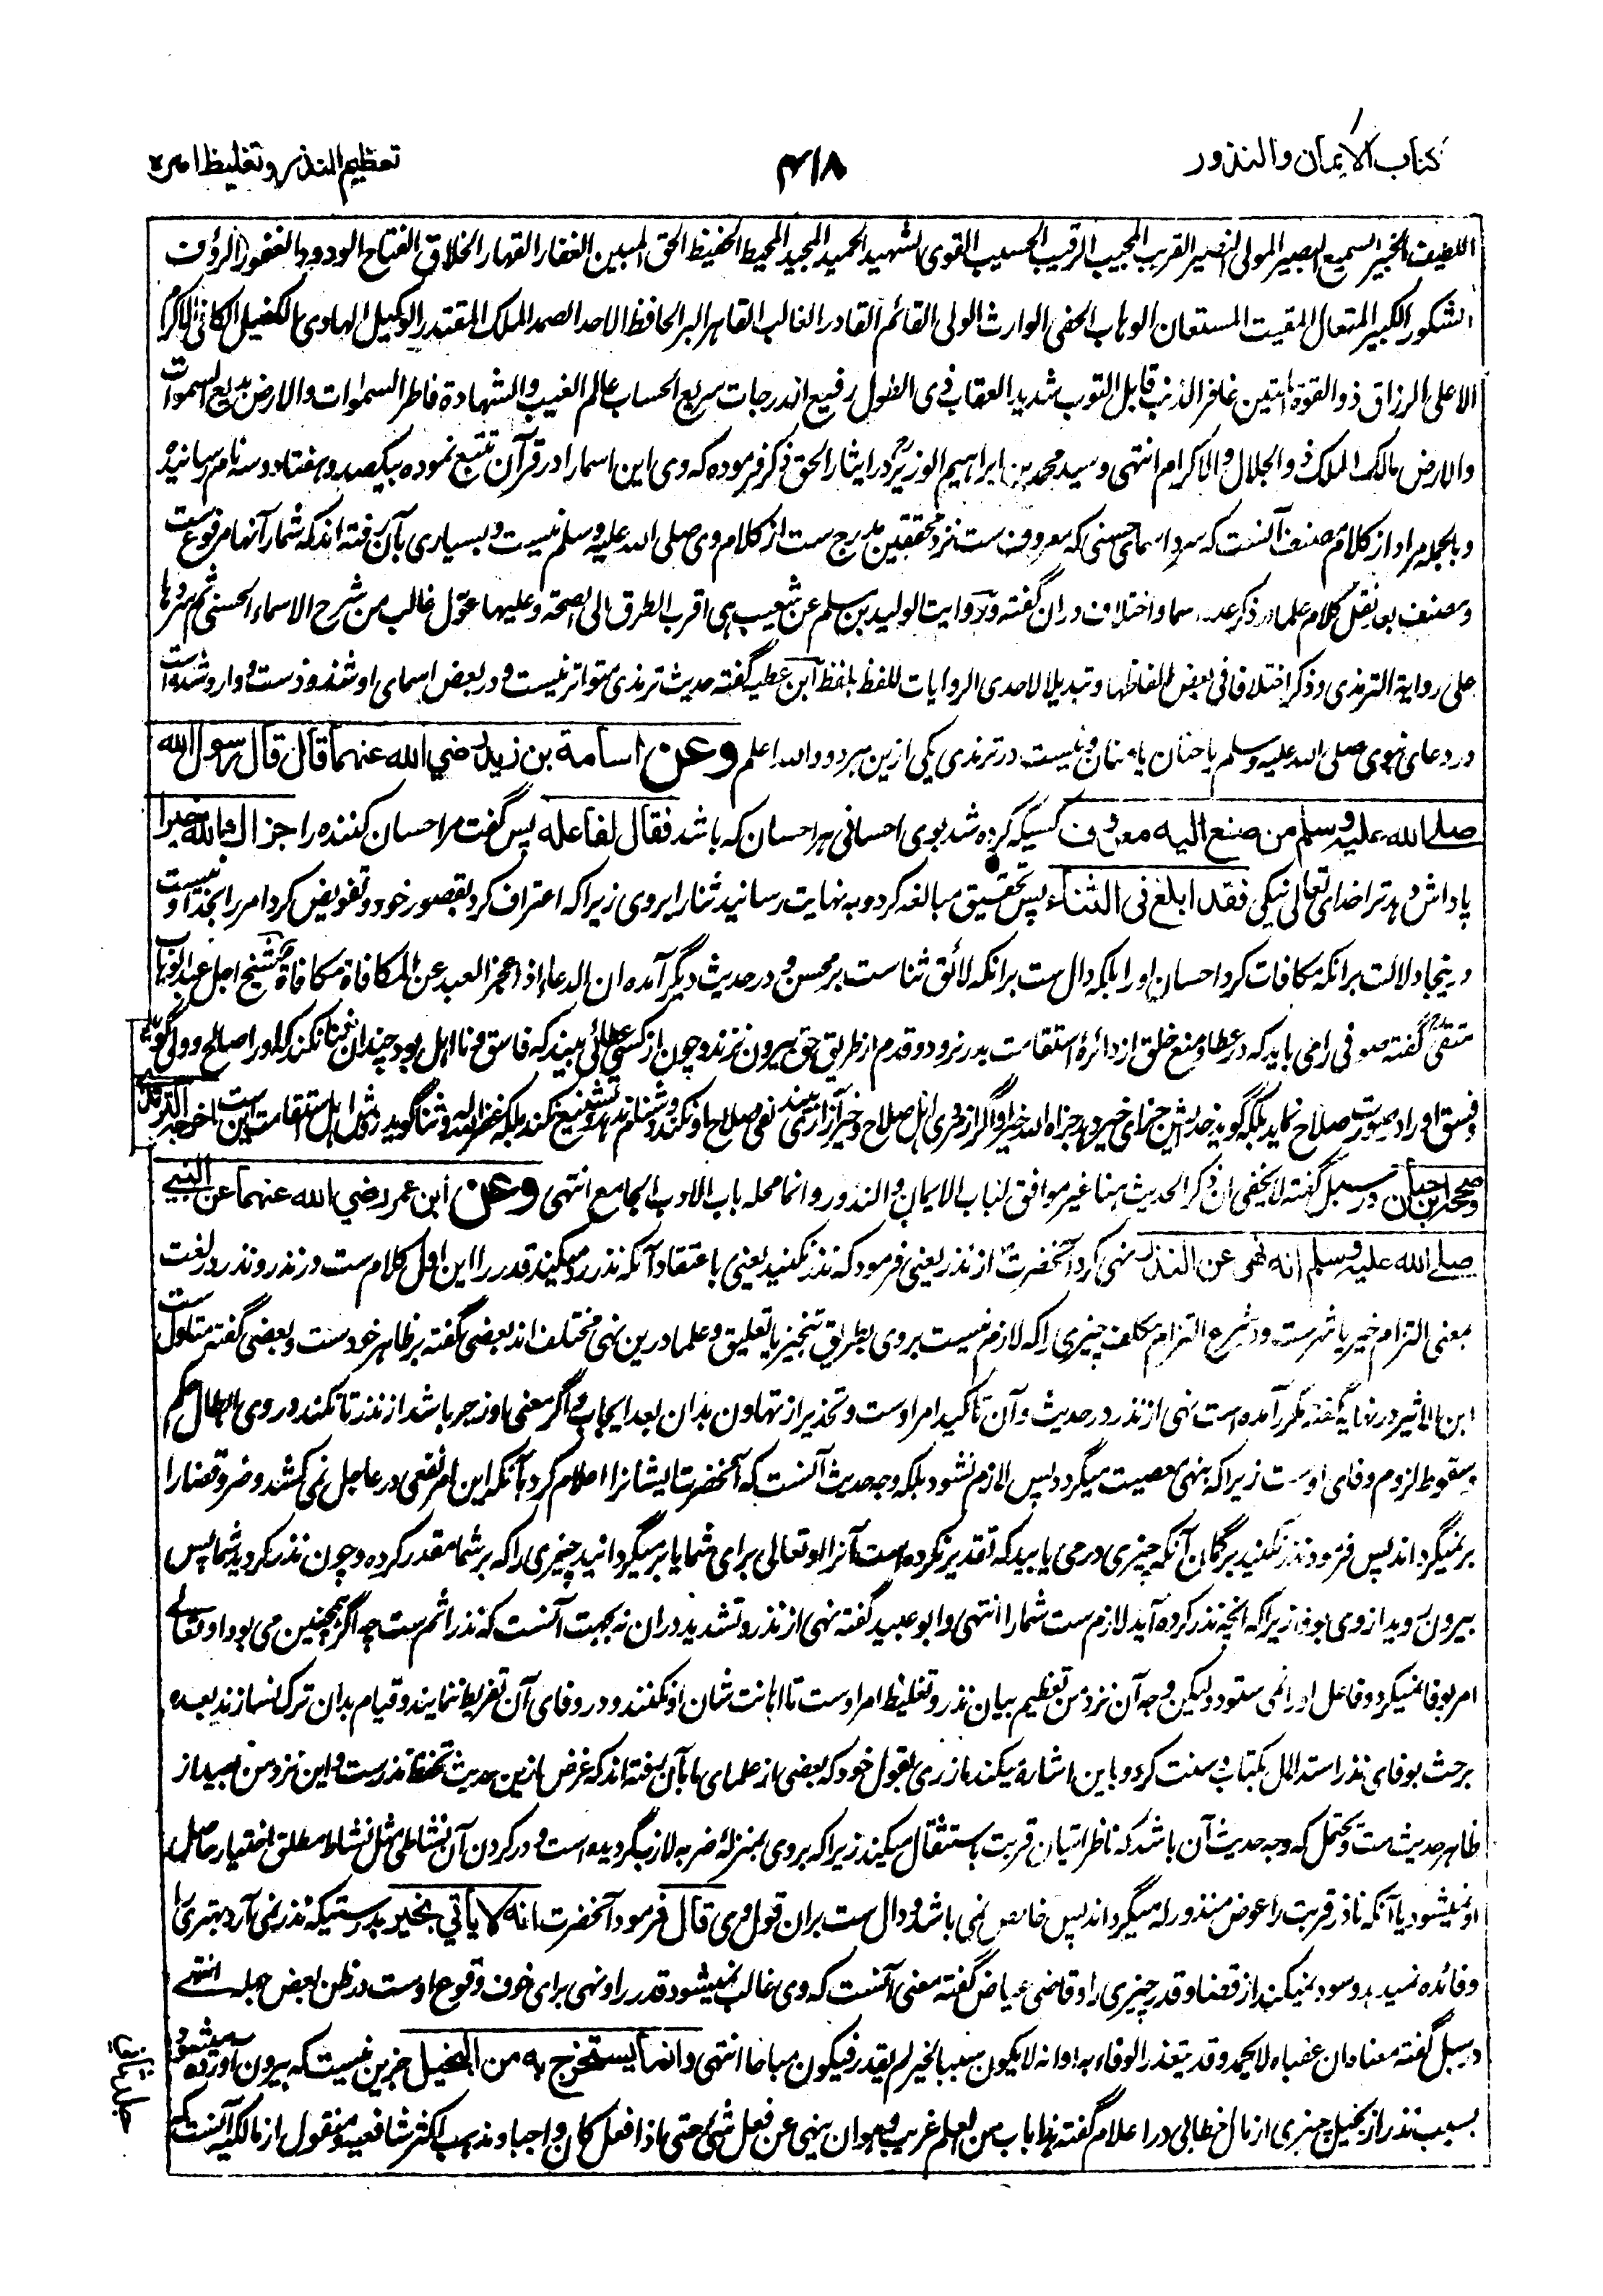 كتاب الأيمان والنذور
۴۱۸
تعظيم النذر وتغليظ امره
اللطيف الخبير السميع البصير المولى النصير القريب المجيب الرقيب الحسيب القوى الشهيد الحميد المجيد المحيط الحفيظ الحق المبين الغفار القهار الخلاق الفتاح الودود الغفور الرؤف
الشكور الكبير المتعال المقيت المستعان الوهاب الحفى الوارث الولى القائم القادر الغالب القاهر البر الحافظ الاحد الصمد الملك المقتدر الوكيل الهادى الكفيل الكافى الاكرم
الاعلى الرزاق ذو القوة المتين غافر الذنب قابل التوب شديد العقاب ذى الطول رفيع الدرجات سريع الحساب عالم الغيب والشهادة فاطر السموات والارض بديع السموات
والارض مالك الملك ذو الجلال والاكرام انتهى وسيد محمد بن ابراهيم الوزير رح در ايثار الحق ذكر فرموده كه وى اين اسما را در قرآن تتبع نموده بيكصد و هفتاد و سه نام رسانيده
و بالجمله مراد از كلام مصنف آنست كه سرد اسماى حسنى كه معروف ست نزد محققين مدرج ست از كلام وى صلى الله عليه وسلم نيست و بسيارى بآن رفته اند كه شمار آنها مرفوع ست
و مصنف بعد نقل كلام علما در ذكر عدد اسما و اختلاف دران گفته و روايت الوليد بن مسلم عن شعيب هى اقرب الطرق الى الصحة وعليها عول غالب من شرح الاسماء الحسنى ثم سردها
على رواية الترمذى وذكر اختلافا فى بعض الفاظها وتبديلا لاحدى الروايات للفظ بلفظ ابن عطيه گفته حديث ترمذى متواتر نيست و در بعض اسماى او شذوذ ست و وارد شده است
در دعاى نبوى صلى الله عليه وسلم يا حنان يا منان و نيست در ترمذى يكى ازين هر دو والله اعلم وعن اسامة بن زيد رضي الله عنهما قال قال رسول الله
صلى الله عليه وسلم من صنع اليه معروف كسيكه كرده شد بوى احسانى هر احسان كه باشد فقال لفاعله پس گفت مر احسان كننده را جزاك الله خيرا
پاداش دهد ترا خداى تعالى نيكى فقد ابلغ فى الثناء پس تحقيق مبالغه كرد و به نهايت رسانيد ثنا را بر وى زيرا كه اعتراف كرد بقصور خود و تفويض كرد امر را بخدا و نيست
درينجا دلالت برانكه مكافات كرد احسان او را بلكه دال ست برانكه لائق ثناست بر محسن و در حديث ديگر آمده ان الدعاء اذا عجز العبد عن المكافاة مكافاة شيخ اجل عبد الوهاب
متقى رح گفته صوفى را مى بايد كه در عطا و منع خلق از دائرهٔ استقامت بدر نرود و قدم از طريق حق بيرون نزند و چون از كسى عطائى بيند كه فاسق و نا اهل بود چندان ثنا نكند كه او را صالح و ولى گويد
و فسق او را بصورت صلاح نمايد بلكه گويد خدايش جزاى خير دهد جزاه الله خيرا و اگر از مردى اهل صلاح و خير آزارى بيند نفى صلاح او نكند و دشنام ندهد و تشنيع نكند بلكه غفر الله له و ثنا گويد روش اهل استقامت اين ست اخرجه الترمذى
وصححه ابن حبان در سبل گفته لا يخفى ان ذكر الحديث هنا غير موافق لباب الايمان والنذور وانما محله باب الادب الجامع انتهى وعن ابن عمر رضي الله عنهما عن النبى
صلى الله عليه وسلم انه نهى عن النذر نهى كرد آنحضرت از نذر يعنى فرمود كه نذر نكنيد يعنى باعتقاد آنكه نذر رد ميكند قدر را اين اول كلام ست در نذر و نذر در لغت
بمعنى التزام خير يا شر ست و در شرع التزام مكلف چيزى را كه لازم نيست بر وى بطريق تنجيز يا تعليق و علما درين نهى مختلف اند بعضى گفته بر ظاهر خود ست و بعضى گفته متاول ست
ابن الاثير در نهايه گفته مكرر آمده است نهى از نذر در حديث و آن تاكيد امر اوست و تحذير از تهاون بدان بعد ايجاب و اگر معنى او زجر باشد از نذر تا نكنند در وى ابطال حكم
و سقوط لزوم وفاى اوست زيرا كه بنهى معصيت ميگردد پس لازم نشود بلكه وجه حديث آنست كه آنحضرت ايشانرا اعلام كرد بآنكه اين امر نفعى در عاجل نمى كشد و ضر و قضا را
بر نميگرداند پس فرمود نذر نكنيد بر گمان آنكه چيزى در مى يابيد كه تقدير نكرده است آنرا او تعالى براى شما يا بر ميگردانيد چيزى را كه بر شما مقدر كرده و چون نذر كرديد شما پس
بيرون رويد از وى بوفا زيرا كه آنچه نذر كرده آيد لازم ست شما را انتهى و ابو عبيد گفته نهى از نذر و تشديد دران نه بجهت آنست كه نذر اثم ست چه اگر همچنين مى بود او تعالى
امر بوفا نميكرد و فاعل او را نمى ستود و ليكن وجه آن نزد من تعظيم بيان نذر و تغليظ امر اوست تا اهانت شان او نكنند و در وفاى آن تفريط ننمايند و قيام بدان ترك نسازند بعده
بر حث بوفاى نذر استدلال بكتاب و سنت كرد و باين اشاره ميكند مازرى بقول خود كه بعضى از علماى ما بآن رفته اند كه غرض ازين حديث تحفظ نذر ست و اين نزد من بعيد از
ظاهر حديث ست و يحتمل كه وجه حديث آن باشد كه ناذر اتيان قربت باستثقال ميكند زيرا كه بر وى بمنزلهٔ ضربه لازب گرديده است و در كردن آن نشاطى مثل نشاط مطلق اختيار حاصل
او نميشود يا آنكه ناذر قربت را عوض منذور له ميگرداند پس خالص نمى باشد و دال ست بران قول وى قال فرمود آنحضرت انه لا ياتي بخير بدرستيكه نذر نمى آرد بهترى را
و فائده نميدهد و سود نميكند از قضا و قدر چيزى را و قاضى عياض گفته معنى آنست كه وى غالب نميشود قدر را و نهى براى خوف وقوع اوست در ظن بعض جهله انتهى
در سبل گفته معناه ان عقباه لا يحمد وقد يتعذر الوفاء به او انه لا يكون سببا لخير لم يقدر فيكون مباحا انتهى وانما يستخرج به من البخيل جز اين نيست كه بيرون آورده ميشود
بسبب نذر از بخيل چيزى از مال خطابى در اعلام گفته هذا باب من العلم غريب وهو ان ينهى عن فعل شئ حتى اذا فعل كان واجبا و مذهب اكثر شافعيه و منقول از مالكيه آنست كه